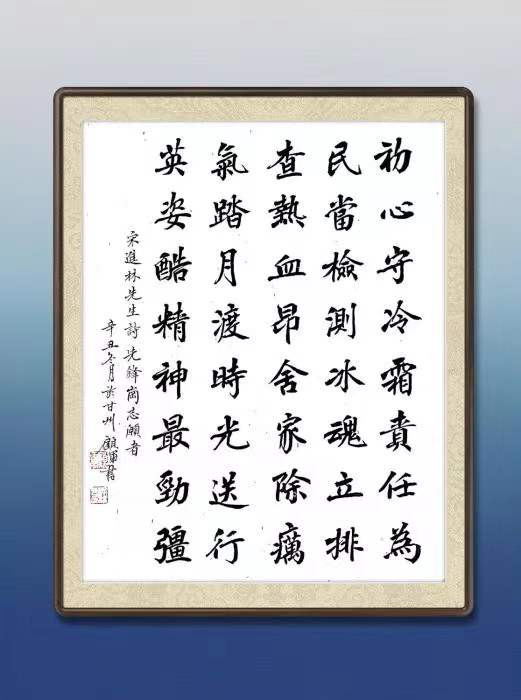 初心守冷霜責任為
民當檢測冰魂立排
查熱血昂舍家除癘
氣踏月渡時光送行
英姿酷精神最勁彊
宋進林先生詩先鋒崗志願者
辛丑冬月於甘州 顧軍書